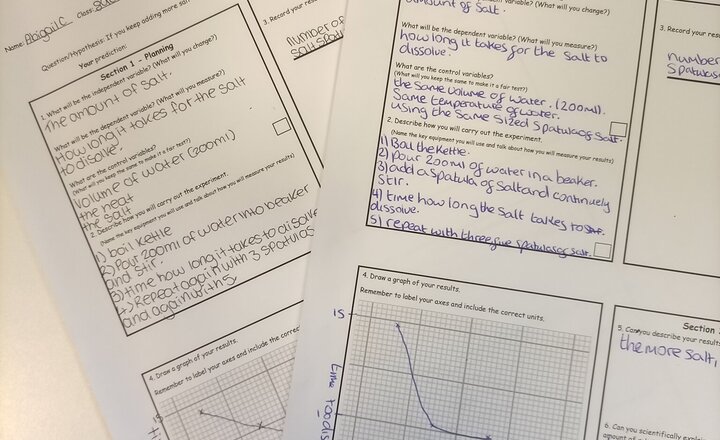 Name: Abigail C Class:
Question/Hypothesis: If you keep adding more sal
Your prediction:
Section 1 - Planning
1. What will be the independent variable? (What will you change?)
The amount of salt.
What will be the dependent variable? (What will you measure?)
How long it takes for the salt
to disolve.
What are the control variables?
(What will you keep the same to make it a fair test?)
Volume of water (200ml)
the heat
the salt
2. Describe how you will carry out the experiment.
(Name the key equipment you will use and talk about how you will measure your results)
1) boil kettle
2) Pour 200ml of water into beaker
and stir.
3) time how long it takes to disolve
4) Repeat again with 3 spatulas
and again with 5.
4. Draw a graph of your results.
Remember to label your axes and include the correc
15
3. Record your resu
number of
salt spatu
variable? (What will you change?)
amount of salt.
What will be the dependent variable? (What will you measure?)
how long it takes for the salt to
dissolve.
What are the control variables?
(What will you keep the same to make it a fair test?)
the same volume of water. (200ml).
Same temperature of water.
using the same sized spatula of salt.
2. Describe how you will carry out the experiment.
(Name the key equipment you will use and talk about how you will measure your results)
1) Boil the Kettle.
2) pour 200ml of water in a beaker.
3) add a spatula of salt and continuely
stir.
4) time how long the salt takes to
dissolve.
5) repeat with three, five spatulas of salt.
4. Draw a graph of your results.
Remember to label your axes and include the correct units.
15
Time to dis
3. Record your resu
number
Spatulas
Section
5. Can you describe your result
the more salt,
6. Can you scientifically expla
amount of